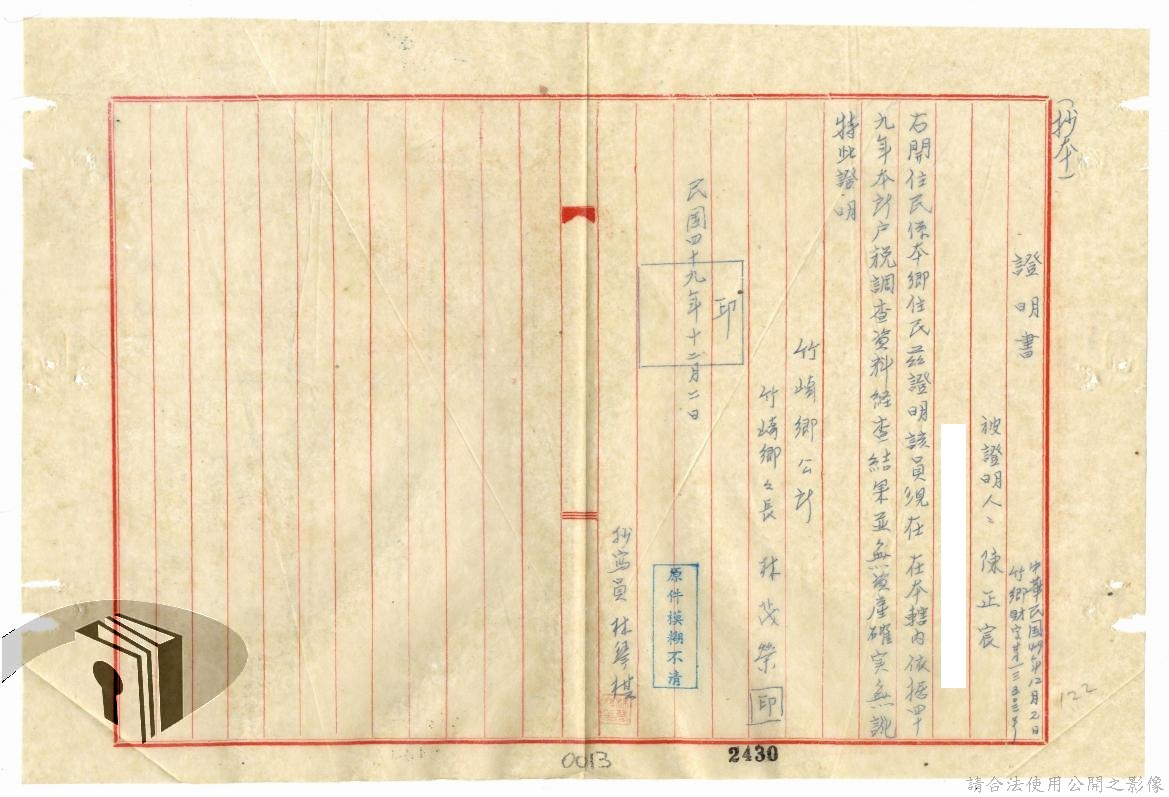 （抄本）
證明書
中華民國49年12月2日
竹鄉財字第一三五三号
被證明人：陳正宸
右開住民係本鄉住民茲證明該員現在 在本轄內依据四十
九年本所户稅調查資料経查結果並無資產確実無訛
特此證明
竹崎鄉公所
竹崎鄉々長 林茂榮 印
印
民国四十九年十二月二日
抄寫員 林琴棋
原件模糊不清
122
0013
2430
請合法使用公開之影像